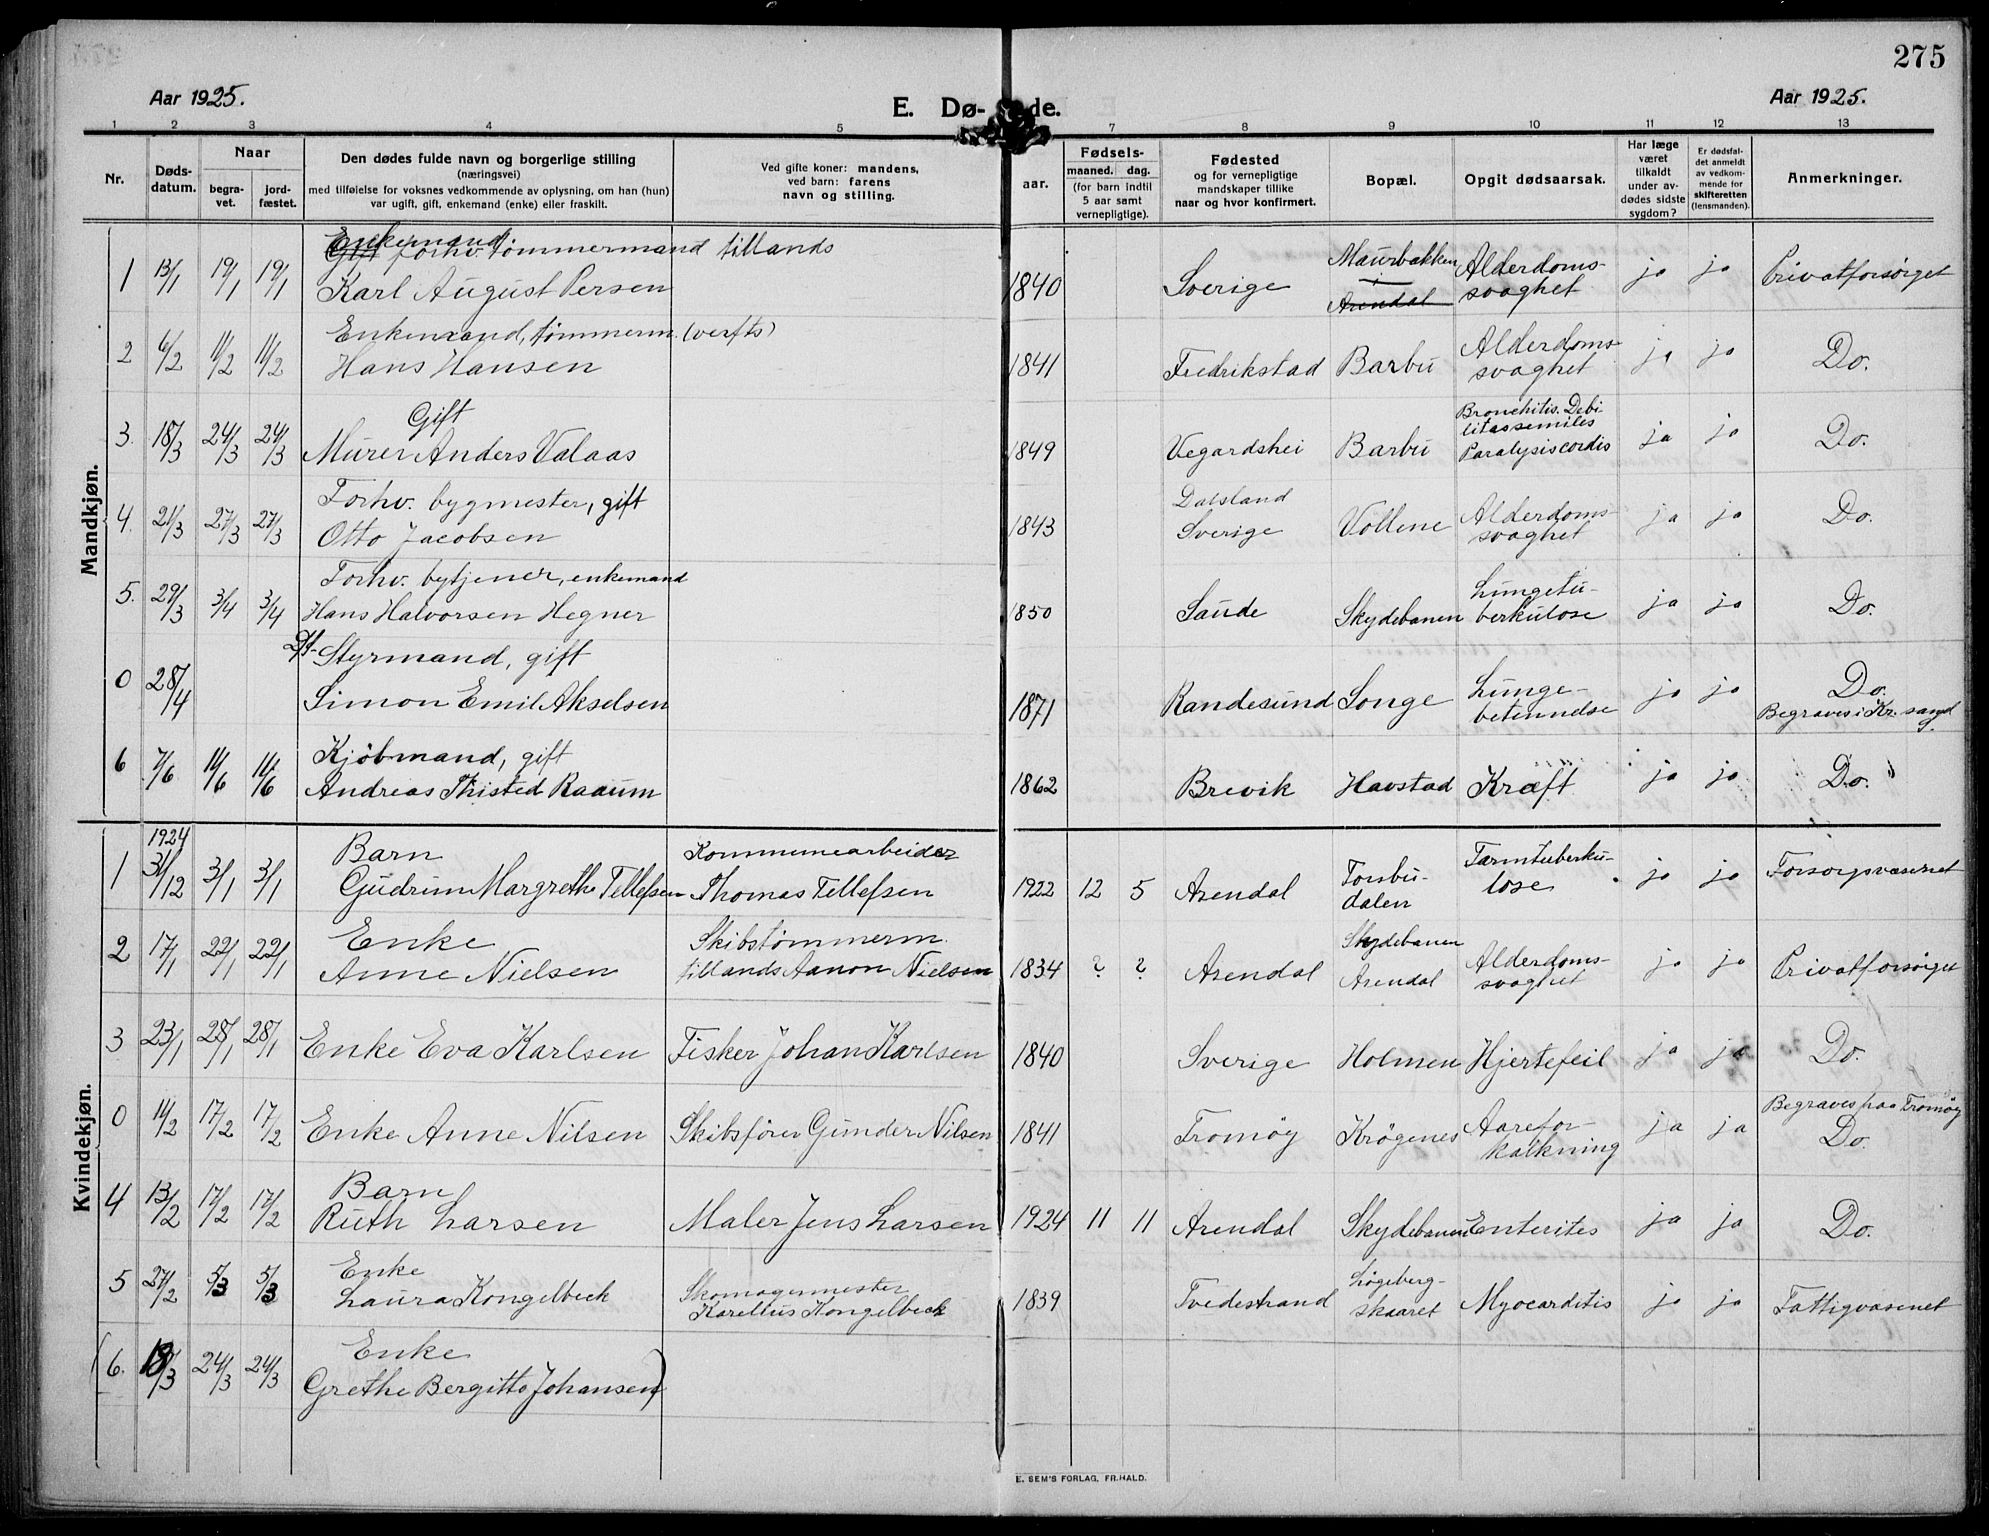 275
Aar 1925.
E. Dø-
de.
Aar 1925.
1 2 3 4 5 7 8 9 10 11 12 13
Nr.
Døds-
datum.
Naar
begra-
vet.
jord-
fæstet.
Den dødes fulde navn og borgerlige stilling
(næringsvei)
med tilføielse for voksnes vedkommende av oplysning, om han (hun)
var ugift, gift, enkemand (enke) eller fraskilt.
Ved gifte koner: mandens,
ved barn: farens
navn og stilling.
Fødsels-
aar.
maaned. dag.
(for barn indtil
5 aar samt
vernepligtige).
Fødested
og for vernepligtige
mandskaper tillike
naar og hvor konfirmert.
Bopæl.
Opgit dødsaarsak.
Har læge
været
tilkaldt
under av-
dødes sidste
sygdom?
Er dødsfal-
det anmeldt
av vedkom-
mende for
skifteretten
(lensmanden).
Anmerkninger.
Mandkjøn.
Enkemand
Gift forhv. tømmermand tillands
1 13/1 19/1 19/1 Karl August Persen 1840 Sverige
Maurbakken
Arendal
Alderdoms-
svaghet
ja ja Privatforsørget
Enkemand, tømmerm. (verfts)
2 6/2 11/2 11/2 Hans Hansen 1841 Fredrikstad Barbu
Alderdoms-
svaghet
ja ja Do.
Gift
3. 18/3 24/3 24/3 Murer Anders Valaas 1849 Vegardshei Barbu
Bronchitis. Debi-
litas senilis
Paralysis cordis
ja ja Do.
Forhv. bygmester, gift
4. 21/3 27/3 27/3 Otto Jacobsen 1843
Dalsland
Sverige
Vollene
Alderdoms-
svaghet
ja ja Do.
Forhv. bytjener, enkemand
5. 29/3 3/4 3/4 Hans Halvorsen Hegner 1850 Saude Skydebanen
Lungetu-
berkulose
ja ja Do.
Styrmand, gift
0 28/4 Simon Emil Akselsen 1871 Randesund Songe
Lunge-
betennelse
ja ja Do.
Begraves i Kr.sand.
Kjøbmand, gift
6 7/6 11/6 11/6 Andreas Thisted Raaum 1862 Brevik Havstad Kræft ja ja Do.
Kvindekjøn.
1924
Barn
Kommunearbeider
1 31/12 3/1 3/1 Gudrun Margrethe Tellefsen Thomas Tellefsen 1922 12 5 Arendal
Torsbu-
dalen
Tarmtuberku-
lose
ja ja Forsorgsvæsenet
Enke
Skibstømmerm.
2 17/1 22/1 22/1 Anne Nielsen tillands Aanon Nielsen 1834 ? ? Arendal
Skydebanen
Arendal
Alderdoms-
svaghet
ja ja Privatforsørget
3 23/1 28/1 28/1 Enke Eva Karlsen Fisker Johan Karlsen 1840 Sverige Holmen Hjertefeil ja ja Do.
0 11/2 17/2 17/2 Enke Anne Nilsen Skibsfører Gunder Nilsen 1841 Tromøy Krøgenes
Aarefor-
kalkning
ja ja
Begraves paa Tromøy
Do.
Barn
4 13/2 17/2 17/2 Ruth Larsen Maler Jens Larsen 1924 11 11 Arendal Skydebanen Enterites ja ja Do.
Enke
5 27/2 5/3 5/3 Laura Kongelbeck
Skomagermester
Karelius Kongelbeck
1839 Tvedestrand
Løgeberg-
skaaret
Myocarditis ja ja Fattigvæsenet
Enke
(6. 18/3 24/3 24/3 Grethe Bergitte Johansen)
E. SEM'S FORLAG, FR.HALD.